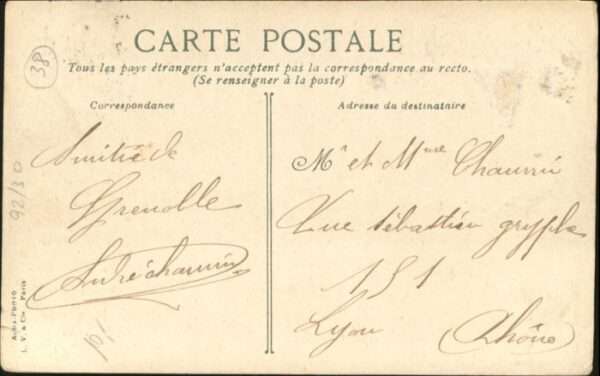 38
CARTE POSTALE
Tous les pays étrangers n'acceptent pas la correspondance au recto.
(Se renseigner à la poste)
Correspondance
Adresse du destinataire
Amitié de
Grenoble
André Chauvin
Mr et Mme Chauvin
Rue Sébastien gryphe
151
Lyon (Rhône)
92/30
L. V. & Cie - Paris